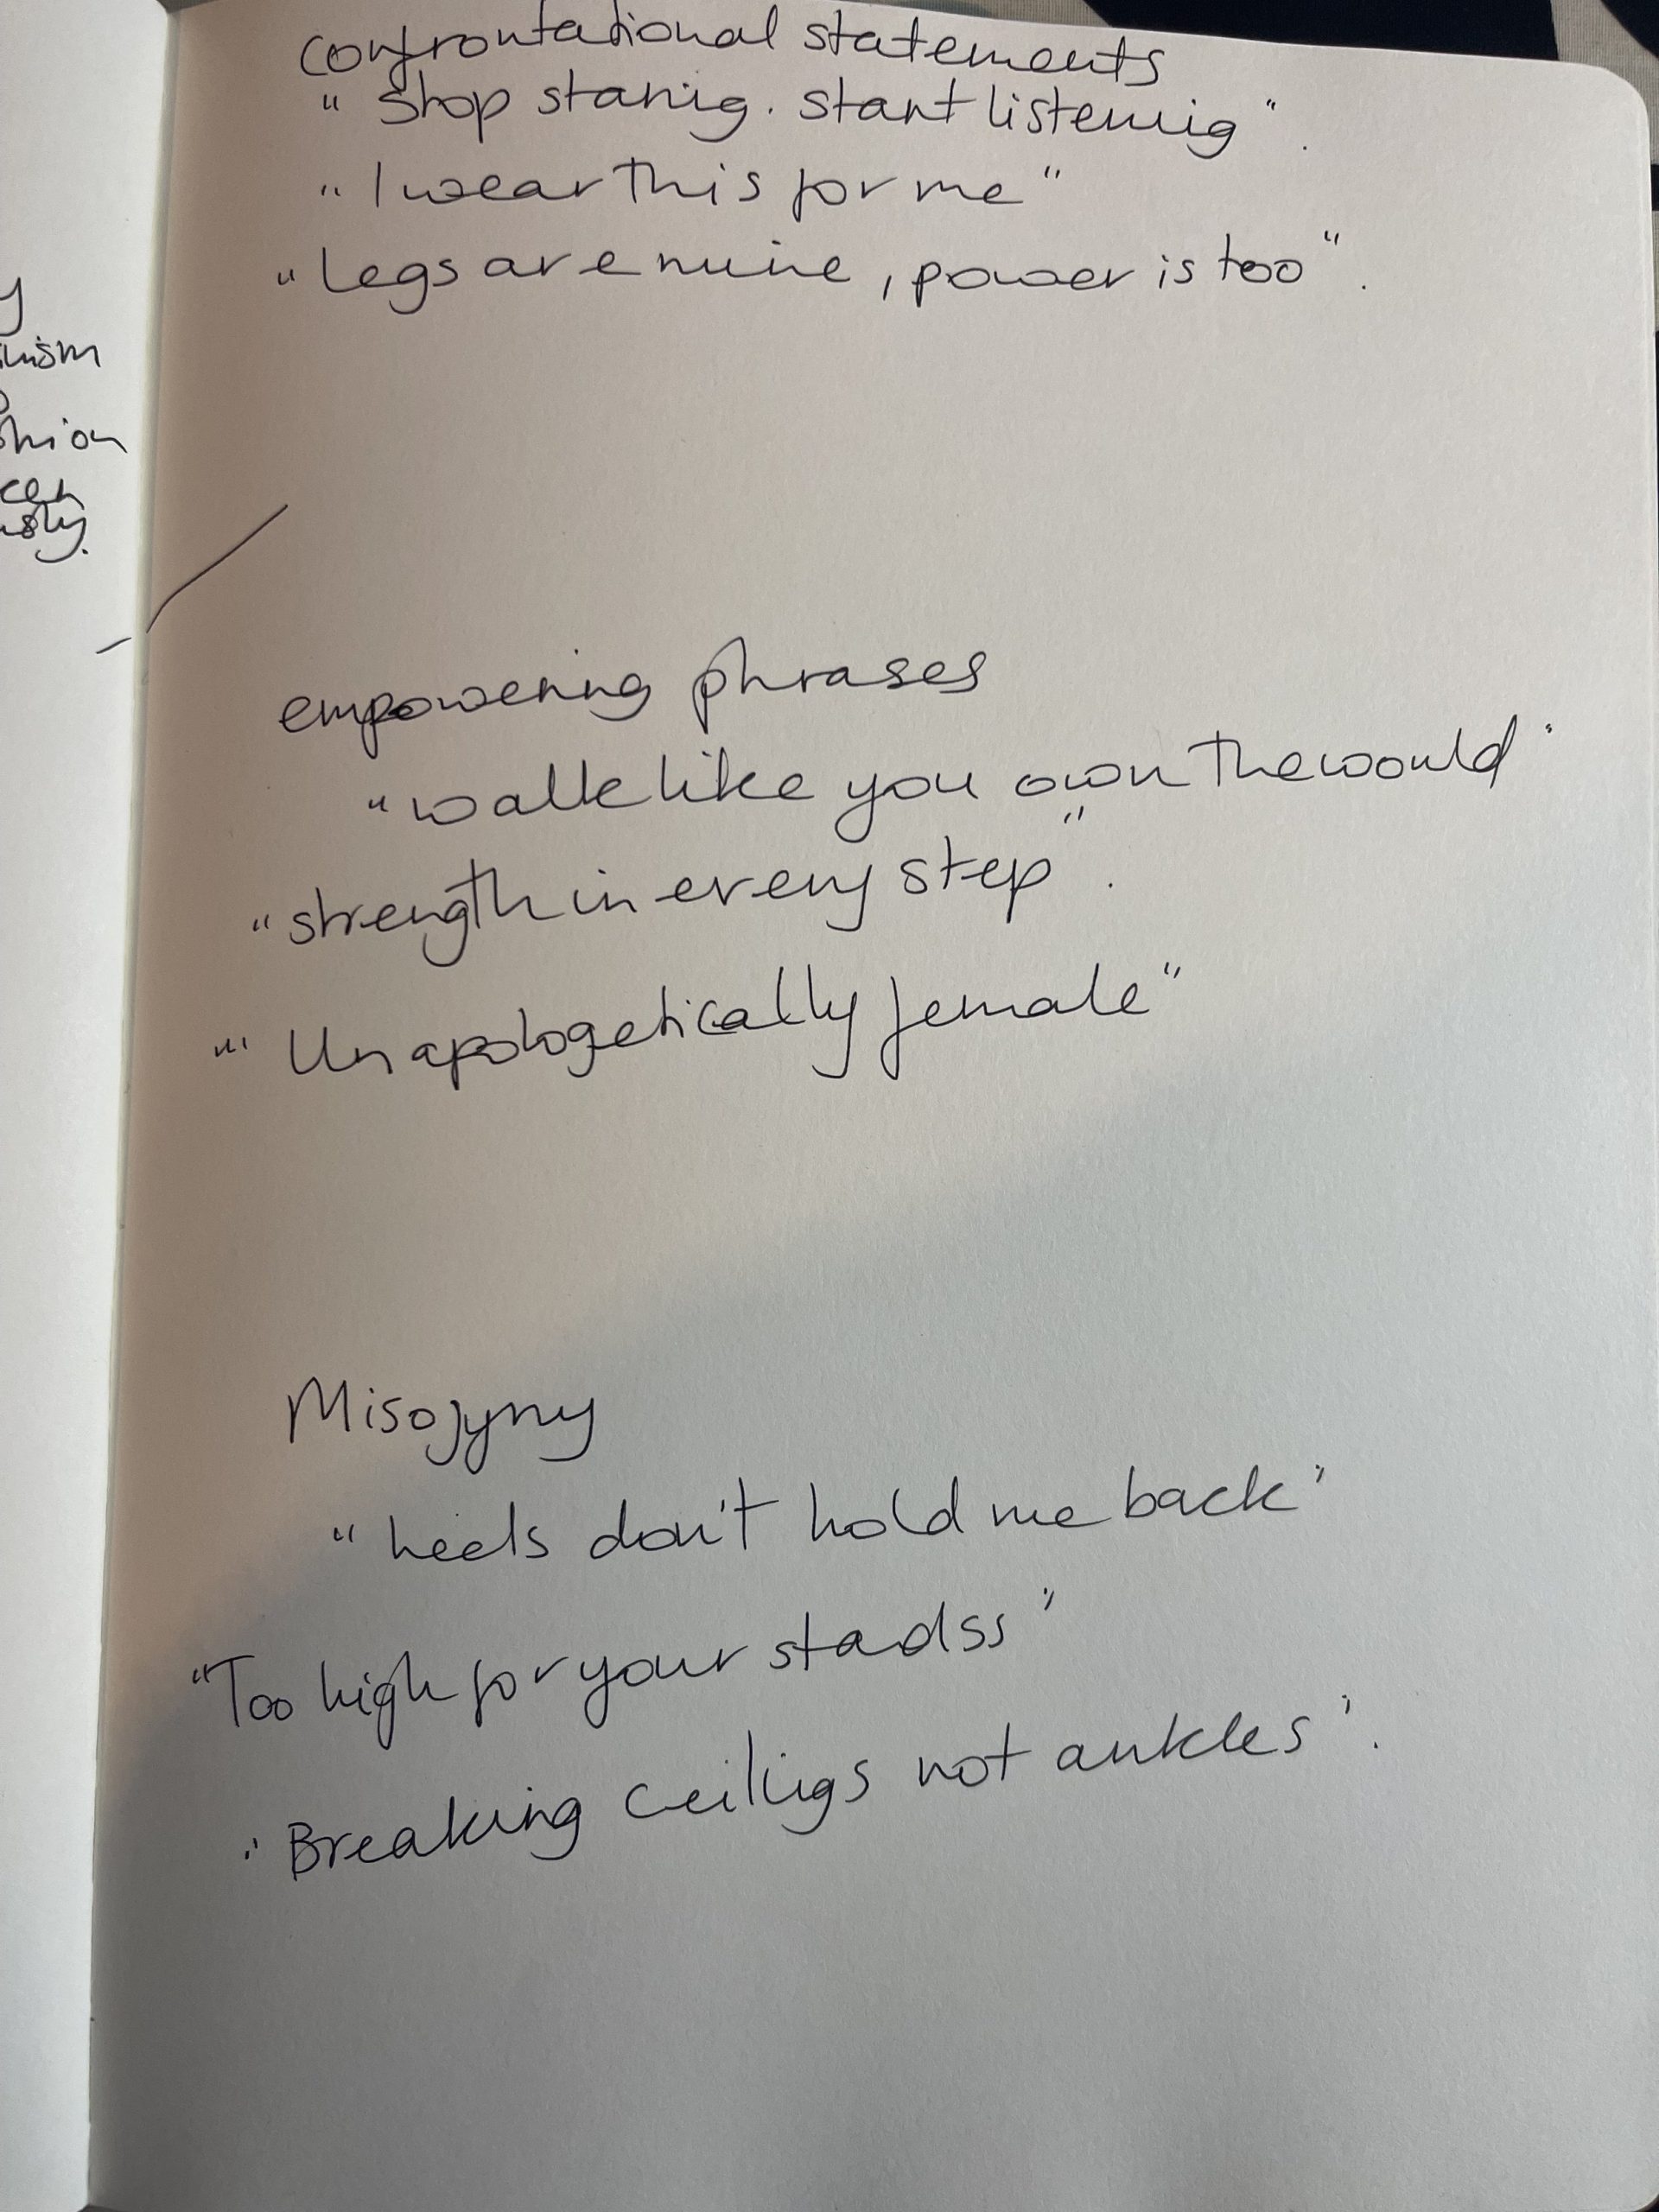 confrontational statements
"Stop staring. Start listening".
"I wear this for me"
"Legs are mine, power is too".
empowering phrases
"walk like you own the would"
"strength in every step".
"Unapologetically female"
Misojyny
"heels don't hold me back"
"Too high for your stadss"
"Breaking ceilings not ankles".